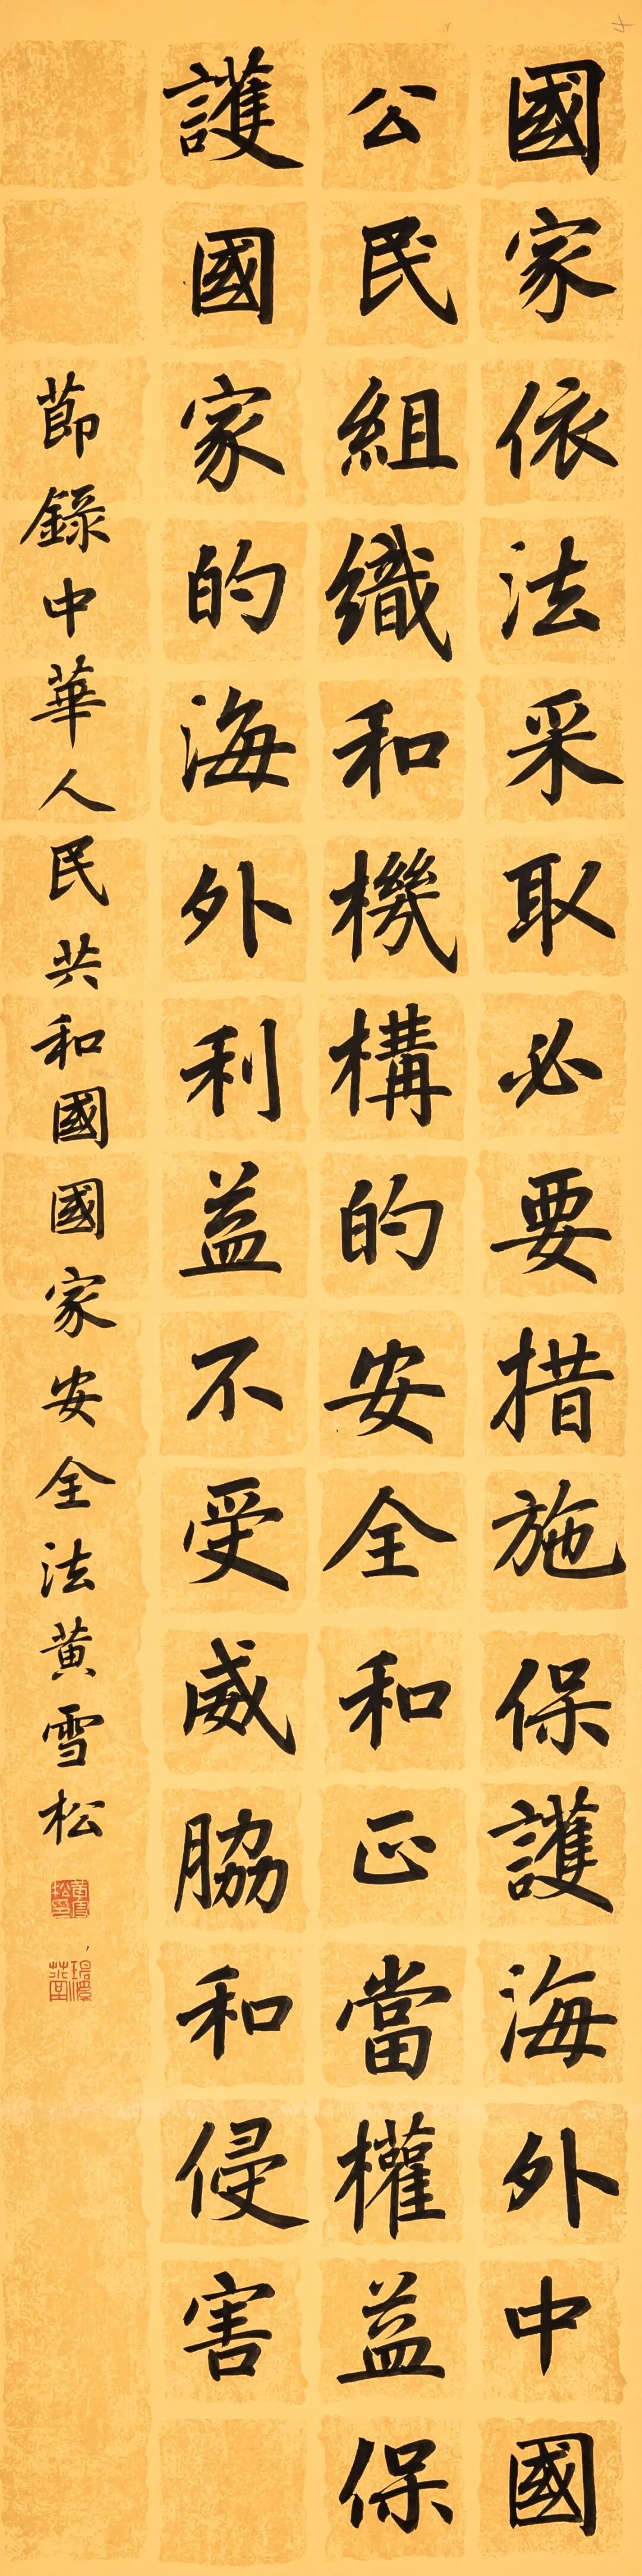 國家依法采取必要措施保護海外中國
公民組織和機構的安全和正當權益保
護國家的海外利益不受威脇和侵害
莭錄中華人民共和國國家安全法黄雪松